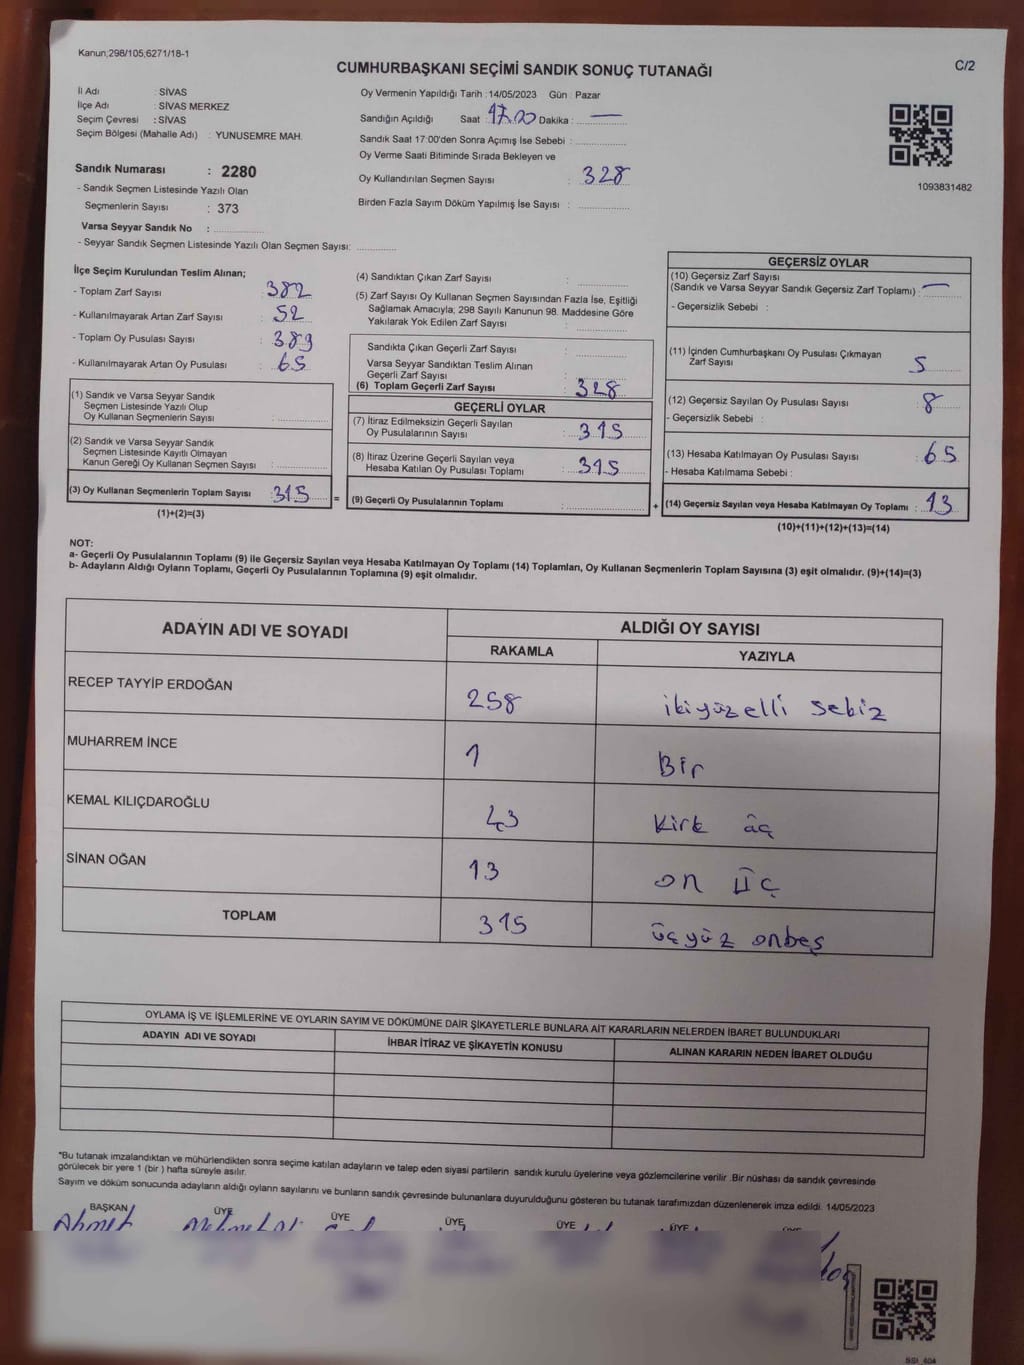 Kanun;298/105;6271/18-1
C/2
CUMHURBAŞKANI SEÇİMİ SANDIK SONUÇ TUTANAĞI
İl Adı : SİVAS
İlçe Adı : SİVAS MERKEZ
Seçim Çevresi : SİVAS
Seçim Bölgesi (Mahalle Adı) : YUNUSEMRE MAH.
Sandık Numarası : 2280
- Sandık Seçmen Listesinde Yazılı Olan
Seçmenlerin Sayısı : 373
Varsa Seyyar Sandık No :
- Seyyar Sandık Seçmen Listesinde Yazılı Olan Seçmen Sayısı:
Oy Vermenin Yapıldığı Tarih :14/05/2023 Gün : Pazar
Sandığın Açıldığı Saat : 17.00 Dakika : —
Sandık Saat 17:00'den Sonra Açımış İse Sebebi :
Oy Verme Saati Bitiminde Sırada Bekleyen ve
Oy Kullandırılan Seçmen Sayısı : 328
Birden Fazla Sayım Döküm Yapılmış İse Sayısı :
1093831482
İlçe Seçim Kurulundan Teslim Alınan;
- Toplam Zarf Sayısı : 382
- Kullanılmayarak Artan Zarf Sayısı : 52
- Toplam Oy Pusulası Sayısı : 389
- Kullanılmayarak Artan Oy Pusulası : 65
(1) Sandık ve Varsa Seyyar Sandık
Seçmen Listesinde Yazılı Olup
Oy Kullanan Seçmenlerin Sayısı :
(2) Sandık ve Varsa Seyyar Sandık
Seçmen Listesinde Kayıtlı Olmayan
Kanun Gereği Oy Kullanan Seçmen Sayısı :
(3) Oy Kullanan Seçmenlerin Toplam Sayısı : 315 =
(1)+(2)=(3)
(4) Sandıktan Çıkan Zarf Sayısı :
(5) Zarf Sayısı Oy Kullanan Seçmen Sayısından Fazla İse, Eşitliği
Sağlamak Amacıyla; 298 Sayılı Kanunun 98. Maddesine Göre
Yakılarak Yok Edilen Zarf Sayısı :
Sandıkta Çıkan Geçerli Zarf Sayısı :
Varsa Seyyar Sandıktan Teslim Alınan
Geçerli Zarf Sayısı :
(6) Toplam Geçerli Zarf Sayısı : 328
GEÇERLİ OYLAR
(7) İtiraz Edilmeksizin Geçerli Sayılan
Oy Pusulalarının Sayısı : 315
(8) İtiraz Üzerine Geçerli Sayılan veya
Hesaba Katılan Oy Pusulası Toplamı : 315
(9) Geçerli Oy Pusulalarının Toplamı : +
GEÇERSİZ OYLAR
(10) Geçersiz Zarf Sayısı
(Sandık ve Varsa Seyyar Sandık Geçersiz Zarf Toplamı) : —
- Geçersizlik Sebebi :
(11) İçinden Cumhurbaşkanı Oy Pusulası Çıkmayan
Zarf Sayısı 5
(12) Geçersiz Sayılan Oy Pusulası Sayısı : 8
- Geçersizlik Sebebi :
(13) Hesaba Katılmayan Oy Pusulası Sayısı : 65
- Hesaba Katılmama Sebebi :
(14) Geçersiz Sayılan veya Hesaba Katılmayan Oy Toplamı : 13
(10)+(11)+(12)+(13)=(14)
NOT:
a- Geçerli Oy Pusulalarının Toplamı (9) ile Geçersiz Sayılan veya Hesaba Katılmayan Oy Toplamı (14) Toplamları, Oy Kullanan Seçmenlerin Toplam Sayısına (3) eşit olmalıdır. (9)+(14)=(3)
b- Adayların Aldığı Oyların Toplamı, Geçerli Oy Pusulalarının Toplamına (9) eşit olmalıdır.
ADAYIN ADI VE SOYADI
ALDIĞI OY SAYISI
RAKAMLA YAZIYLA
RECEP TAYYİP ERDOĞAN 258 ikiyüzelli sekiz
MUHARREM İNCE 1 Bir
KEMAL KILIÇDAROĞLU 43 kırk üç
SİNAN OĞAN 13 on üç
TOPLAM 315 üçyüz onbeş
OYLAMA İŞ VE İŞLEMLERİNE VE OYLARIN SAYIM VE DÖKÜMÜNE DAİR ŞİKAYETLERLE BUNLARA AİT KARARLARIN NELERDEN İBARET BULUNDUKLARI
ADAYIN ADI VE SOYADI İHBAR İTİRAZ VE ŞİKAYETİN KONUSU ALINAN KARARIN NEDEN İBARET OLDUĞU
*Bu tutanak imzalandıktan ve mühürlendikten sonra seçime katılan adayların ve talep eden siyasi partilerin sandık kurulu üyelerine veya gözlemcilerine verilir .Bir nüshası da sandık çevresinde
görülecek bir yere 1 (bir ) hafta süreyle asılır.
Sayım ve döküm sonucunda adayların aldığı oyların sayılarını ve bunların sandık çevresinde bulunanlara duyurulduğunu gösteren bu tutanak tarafımızdan düzenlenerek imza edildi. 14/05/2023
BAŞKAN ÜYE ÜYE ÜYE ÜYE ÜYE
Ahmet